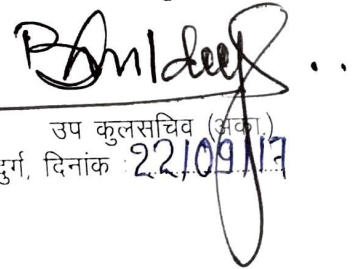 उप कुलसचिव (अका.)
दुर्ग, दिनांक : 22/09/17